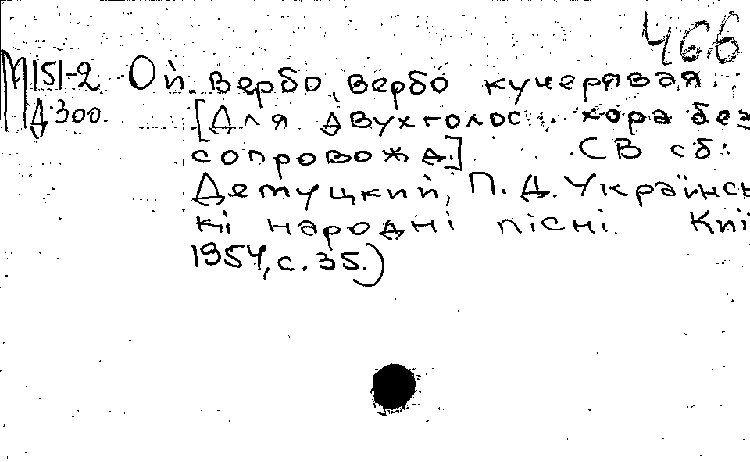 466
М151-2 Ой вербо, вербо кучерявая.
Д300. [Для двухголос. хора без
сопровожд.] (В сб:
Демуцкий, П. Д. Українсь
кі народні пісні. Киї
1954, с. 35.)